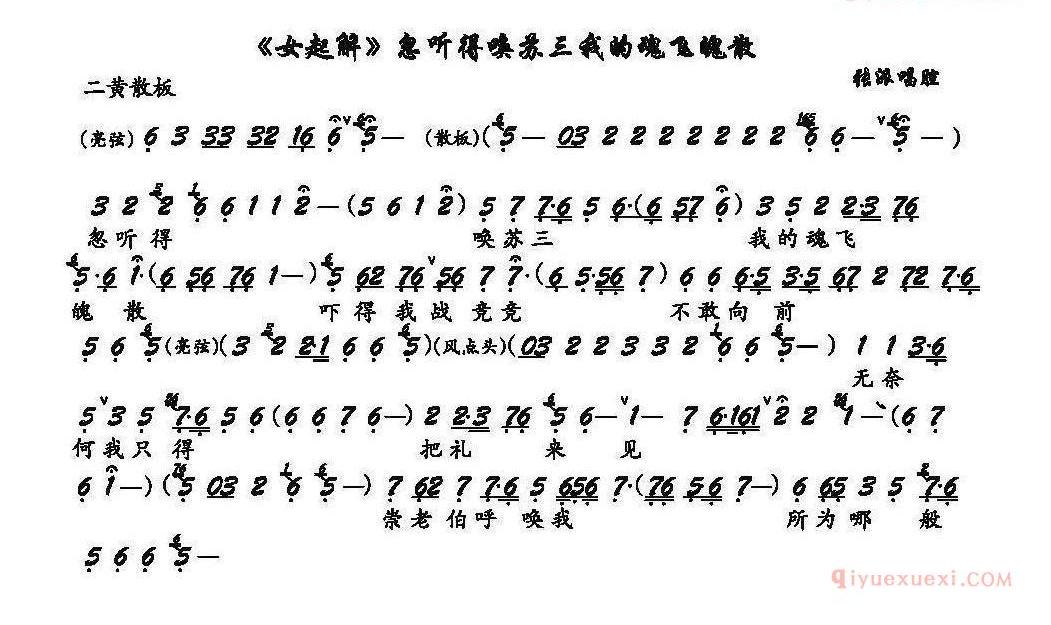 《女起解》忽听得唤苏三我的魂飞魄散
二黄散板
张派唱腔
(亮弦) 6 3 33 32 16 6 5 — (散板) ( 5 — 03 2 2 2 2 2 2 2 6 6 — 5 — )
3 2 2 6 6 1 1 2 — ( 5 6 1 2 ) 5 7 7·6 5 6·( 6 57 6 ) 3 5 2 2·3 76
忽听得 唤苏三 我的魂飞
5·6 1·( 6 56 76 1 — ) 5 62 76 56 7 7·( 6 5·56 7 ) 6 6 6·5 3·5 67 2 72 7·6
魄散 吓得我战兢兢 不敢向前
5 6 5 (亮弦) ( 3 2 2·1 6 6 5 ) (风点头) ( 03 2 2 3 3 2 6 6 5 — ) 1 1 3·6
无奈
5 3 5 7·6 5 6 ( 6 6 7 6 — ) 2 2·3 76 5 6 — 1 — 7 6·161 2 2 1 — ( 6 7
何我只得 把礼来见
6 1 — ) ( 5 03 2 6 5 — ) 7 62 7 7·6 5 656 7·( 76 5·6 7 — ) 6 65 3 5 7·6
崇老伯呼唤我 所为哪般
5 6 6 5 —
qiyuexuexi.COM